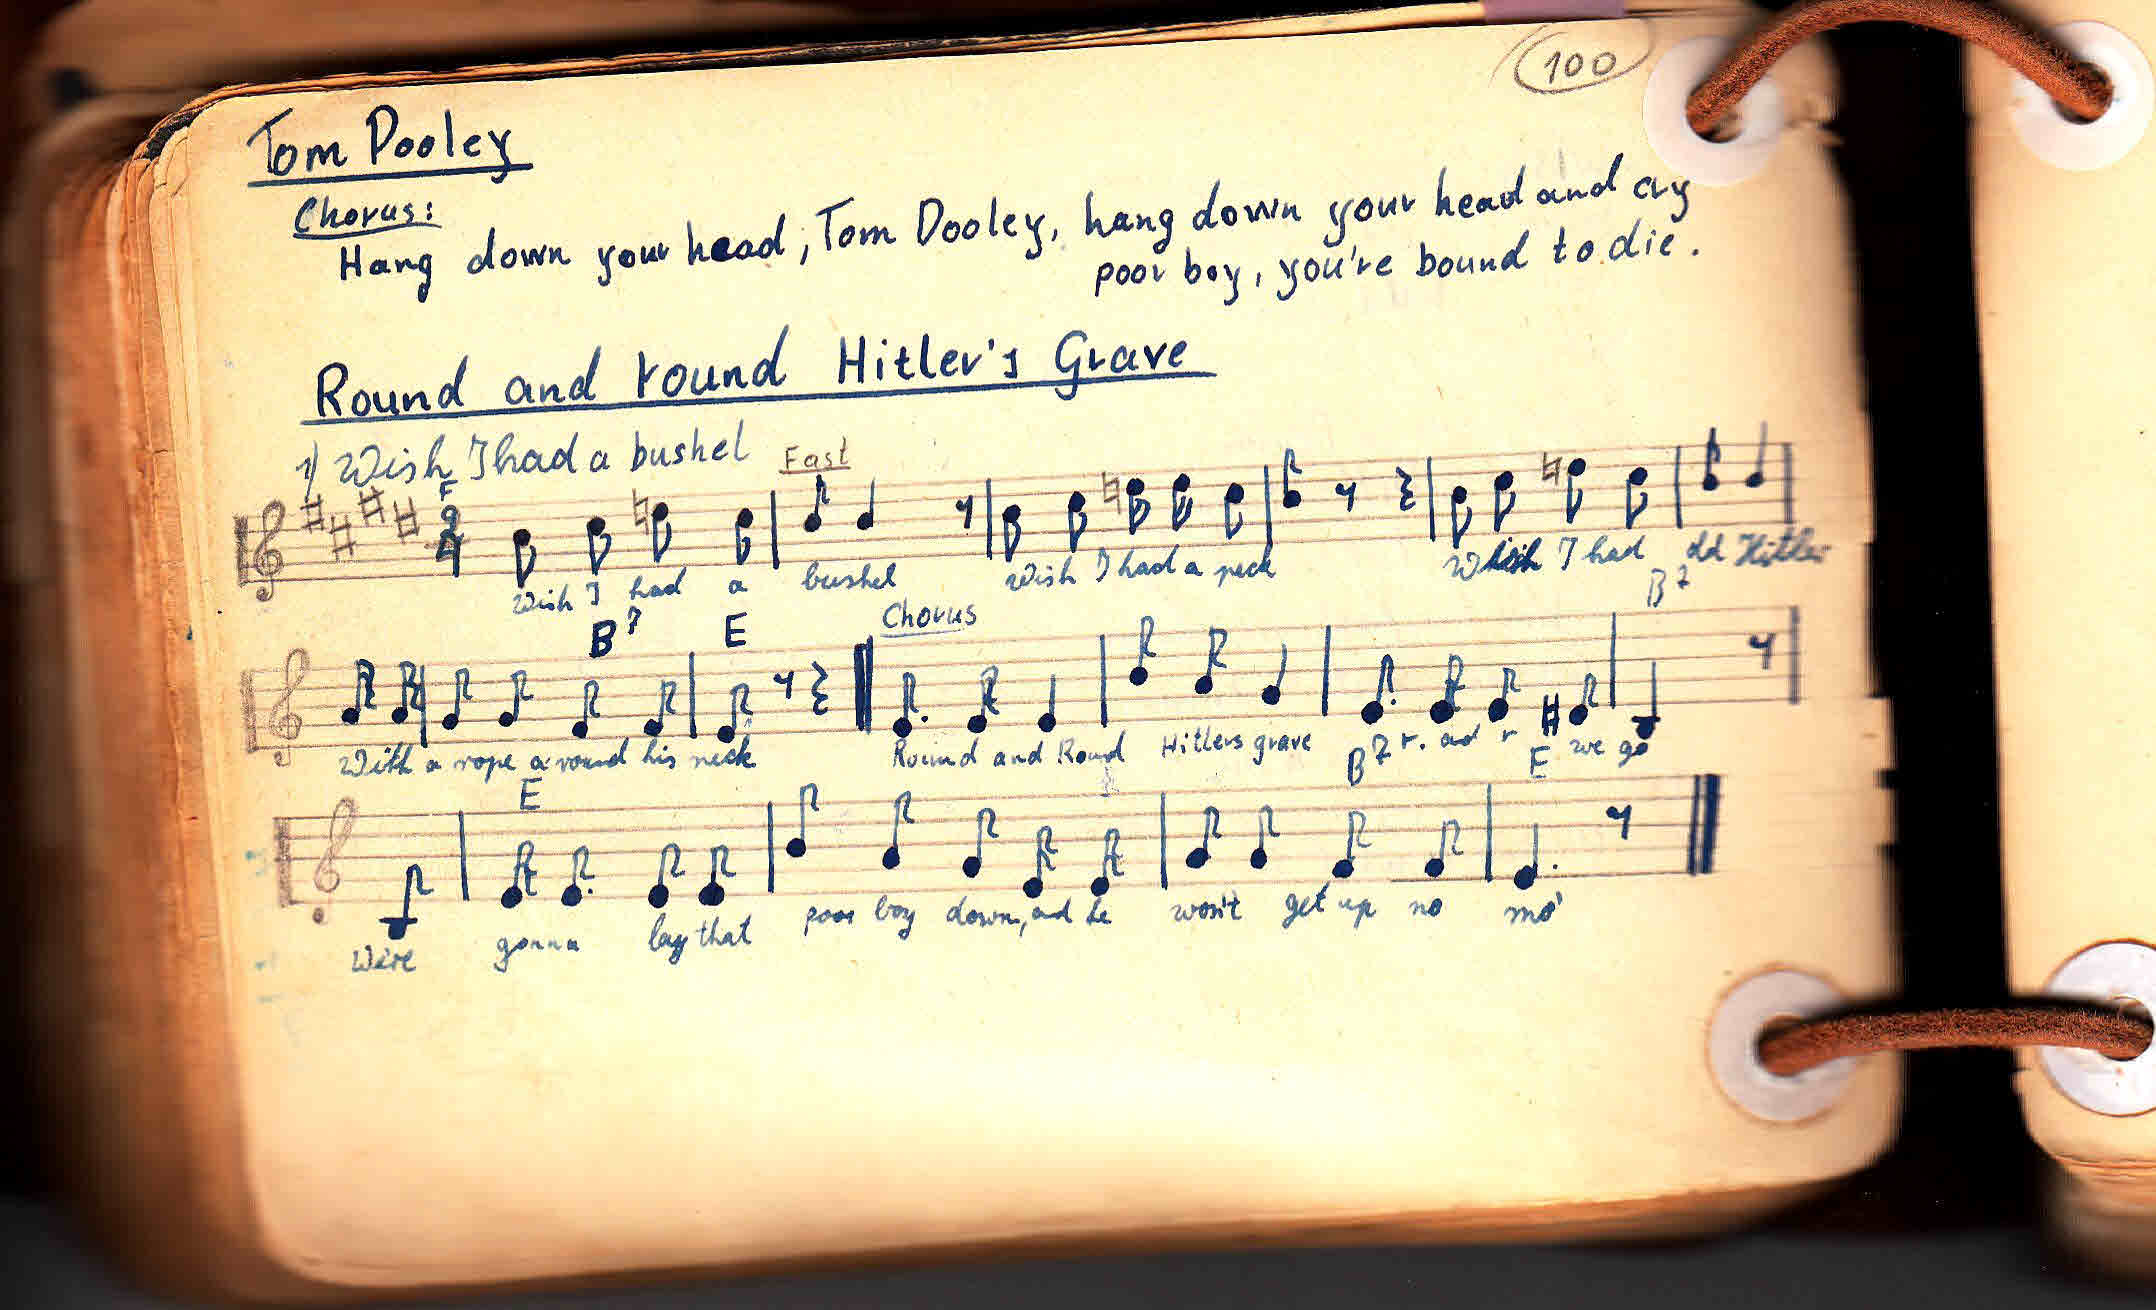 100
Tom Dooley
Chorus:
Hang down your head, Tom Dooley, hang down your head and cry
poor boy, you're bound to die.
Round and round Hitler's Grave
1) Wish I had a bushel
Fast
E
2
4
Wish I had a bushel Wish I had a peck Wish I had old Hitler
B7 E Chorus B7
With a rope around his neck Round and Round Hitlers grave r. and r we go
E B7 E
We're gonna lay that poor boy down, and he won't get up no mo'